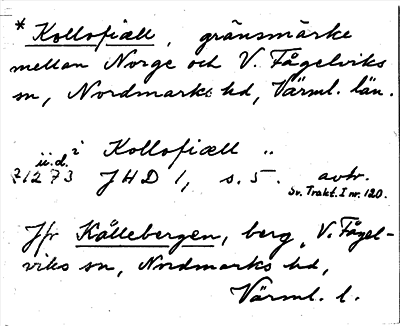 * Kollofiæll, gränsmärke
mellan Norge och V. Fågelviks
sn, Nordmarks hd, Värml. län.
i Kollofiæll ..
u.d.
71273 JHD 1, s. 5. avtr.
Sv. Trakt. I nr. 120.
Jfr Kållebergen, berg, V. Fågel-
viks sn, Nordmarks hd,
Värml. l.